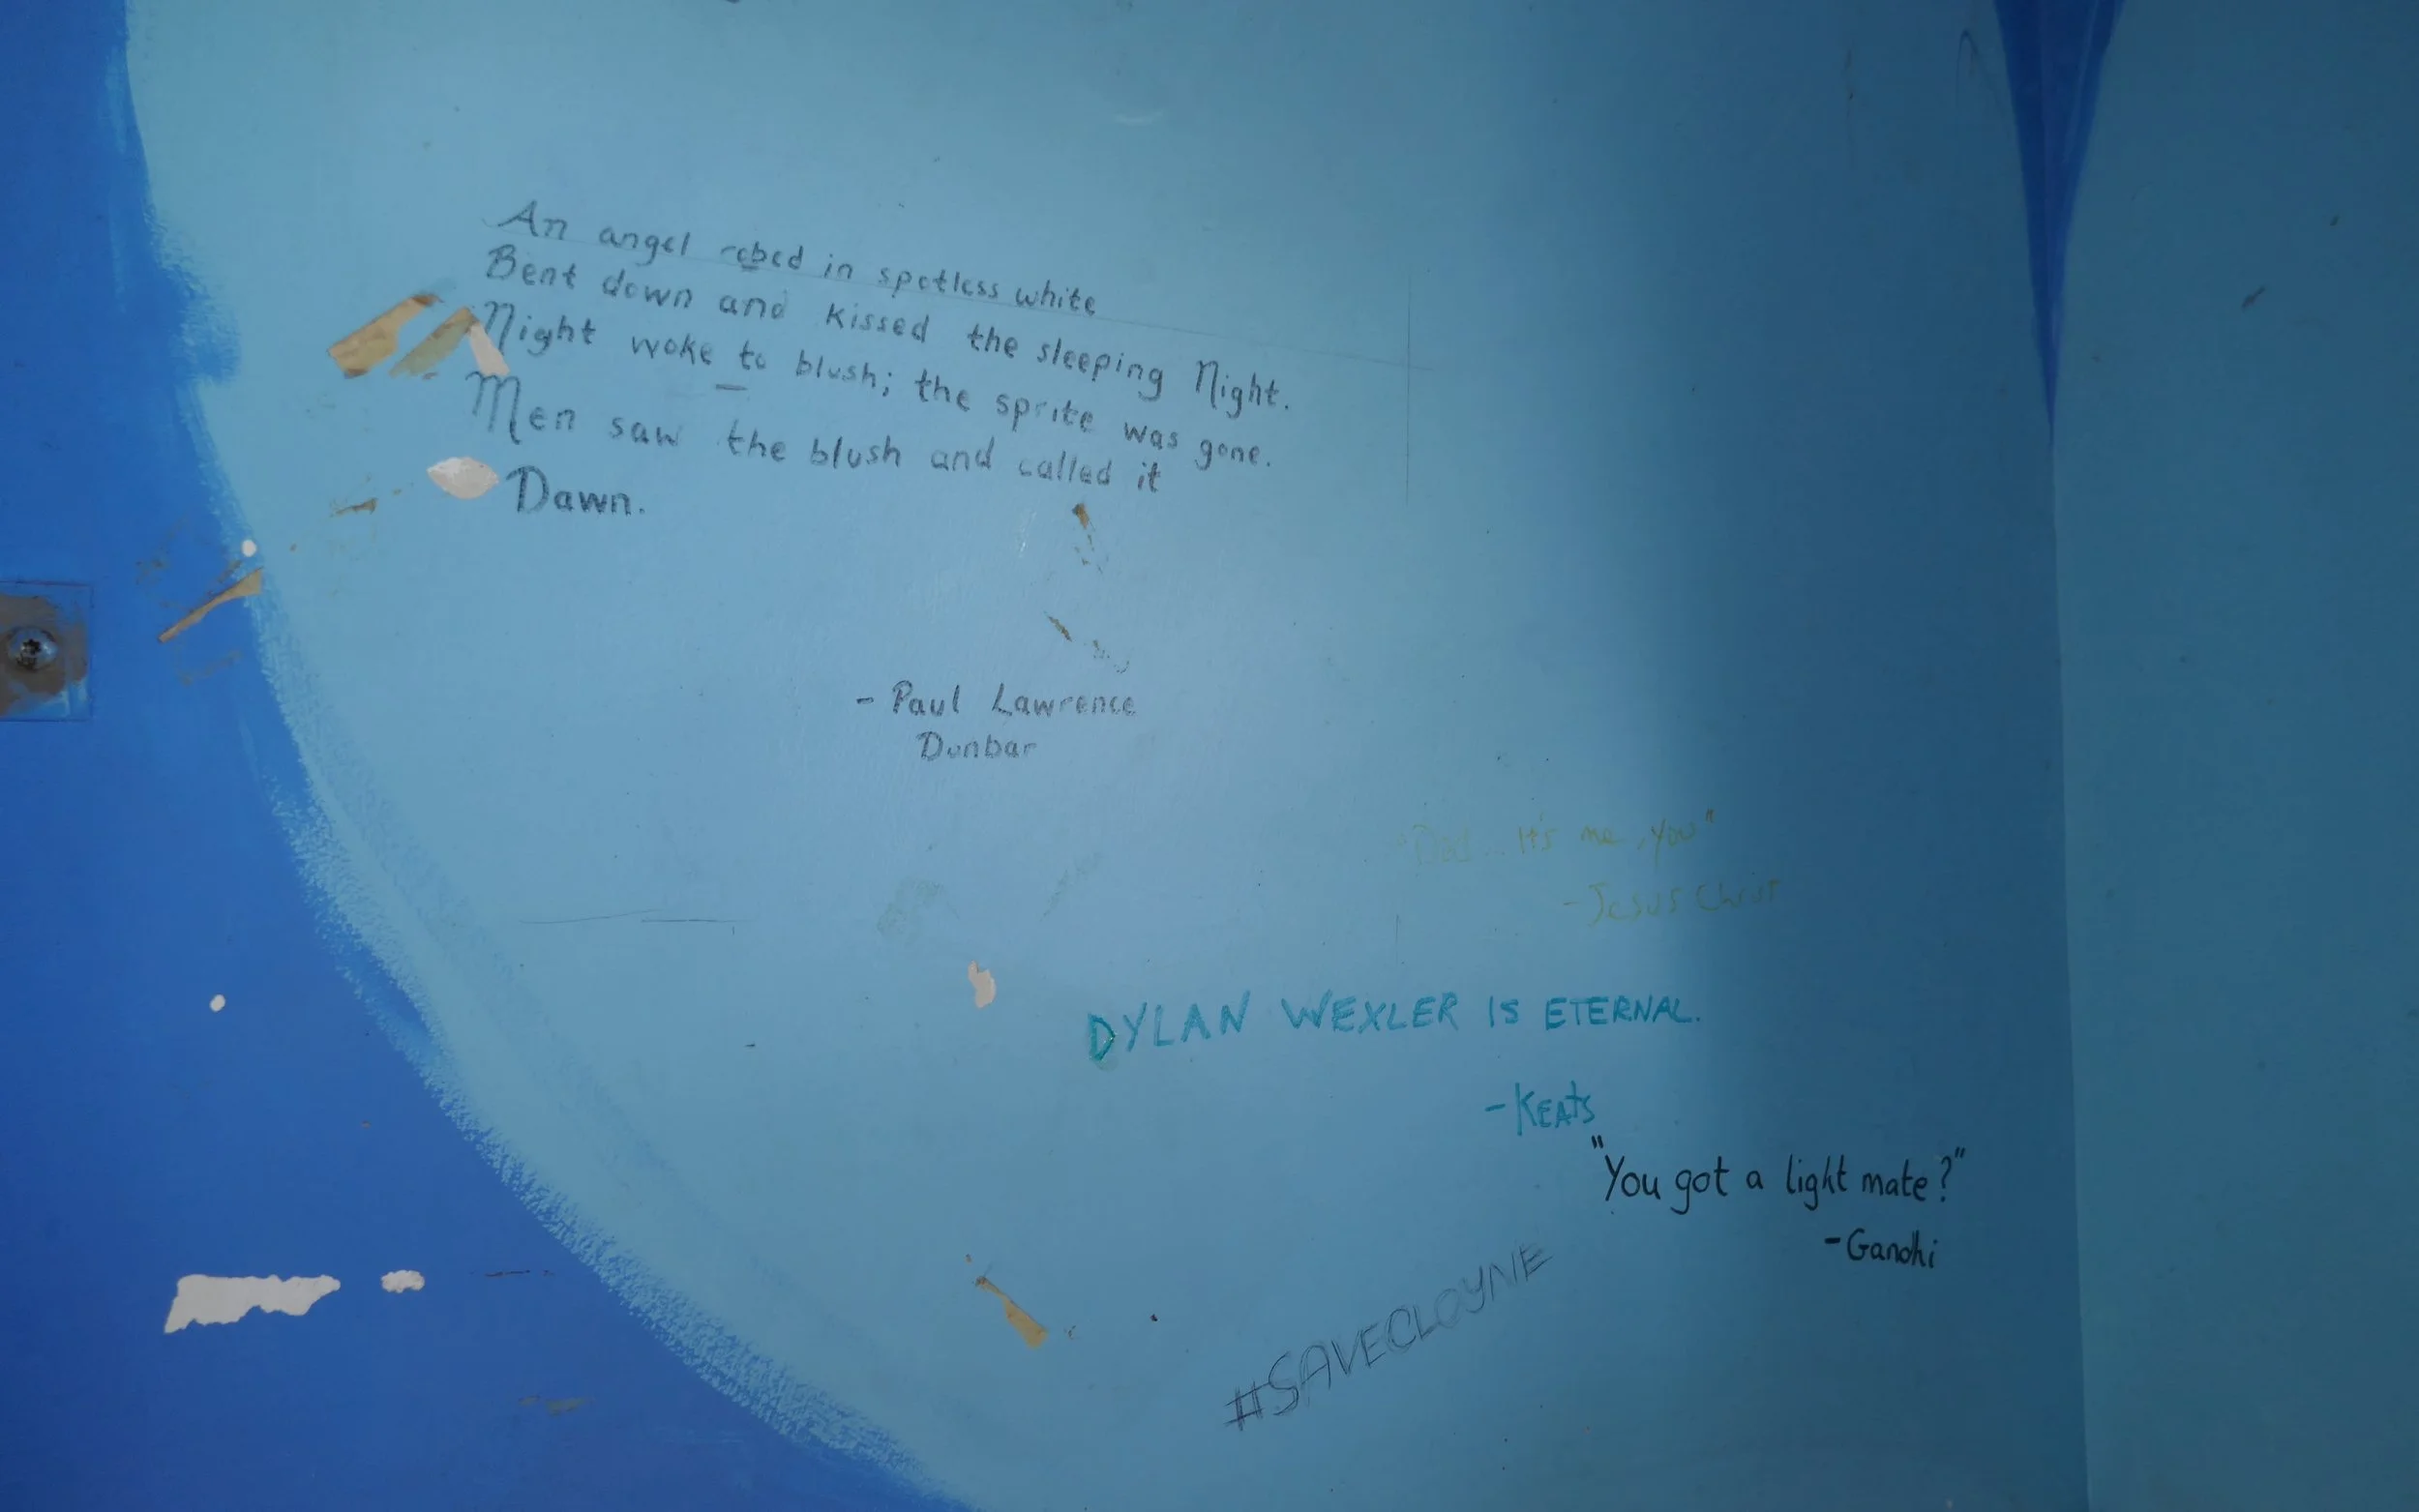 An angel robed in spotless white
Bent down and kissed the sleeping Night.
Night woke to blush; the sprite was gone.
Men saw the blush and called it
Dawn.
- Paul Lawrence
Dunbar
"Dad... It's me, you"
- Jesus Christ
DYLAN WEXLER IS ETERNAL.
- KEATS
"You got a light mate?"
- Gandhi
#SAVECLOYNE